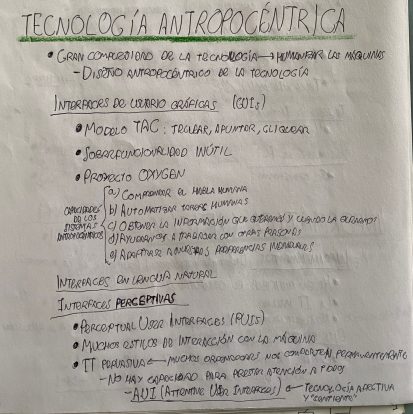 TECNOLOGÍA ANTROPOCÉNTRICA
• GRAN COMPLEJIDAD DE LA TECNOLOGÍA → HUMANIZAR LAS MÁQUINAS
- DISEÑO ANTROPOCÉNTRICO DE LA TECNOLOGÍA
INTERFACES DE USUARIO GRÁFICAS (GUIs)
• MODELO TAC: TECLEAR, APUNTAR, CLIQUEAR
• SOBREFUNCIONALIDAD INÚTIL
• PROYECTO OXYGEN
CAPACIDADES DE LOS SISTEMAS ANTROPOCÉNTRICOS
a) COMPRENDER EL HABLA HUMANA
b) AUTOMATIZAR TAREAS HUMANAS
c) OBTENER LA INFORMACIÓN QUE QUEREMOS Y CUANDO LA QUEREMOS
d) AYUDARNOS A TRABAJAR CON OTRAS PERSONAS
e) ADAPTARSE A NUESTRAS PREFERENCIAS INDIVIDUALES
INTERFACES EN LENGUA NATURAL
INTERFACES PERCEPTIVAS
• PERCEPTUAL USER INTERFACES (PUIs)
• MUCHOS ESTILOS DE INTERACCIÓN CON LA MÁQUINA
• TI PERVASIVA ← MUCHOS ORDENADORES NOS COMPORTEN PERMANENTEMENTE
- NO HAY CAPACIDAD PARA PRESTAR ATENCIÓN A TODOS
- AUI (ATTENTIVE USER INTERFACES) ← TECNOLOGÍA AFECTIVA Y "SENTIENTE"